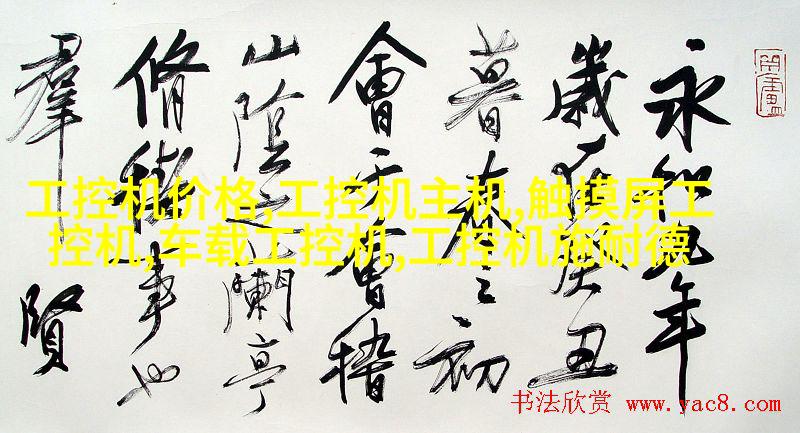 永和九年
歲在癸丑
暮春之初
會于會稽
山陰之蘭亭
脩禊事也
羣賢
工控机价格,工控机主机,触摸屏工
控机,车载工控机,工控机施耐德
书法欣赏 www.yac8.com